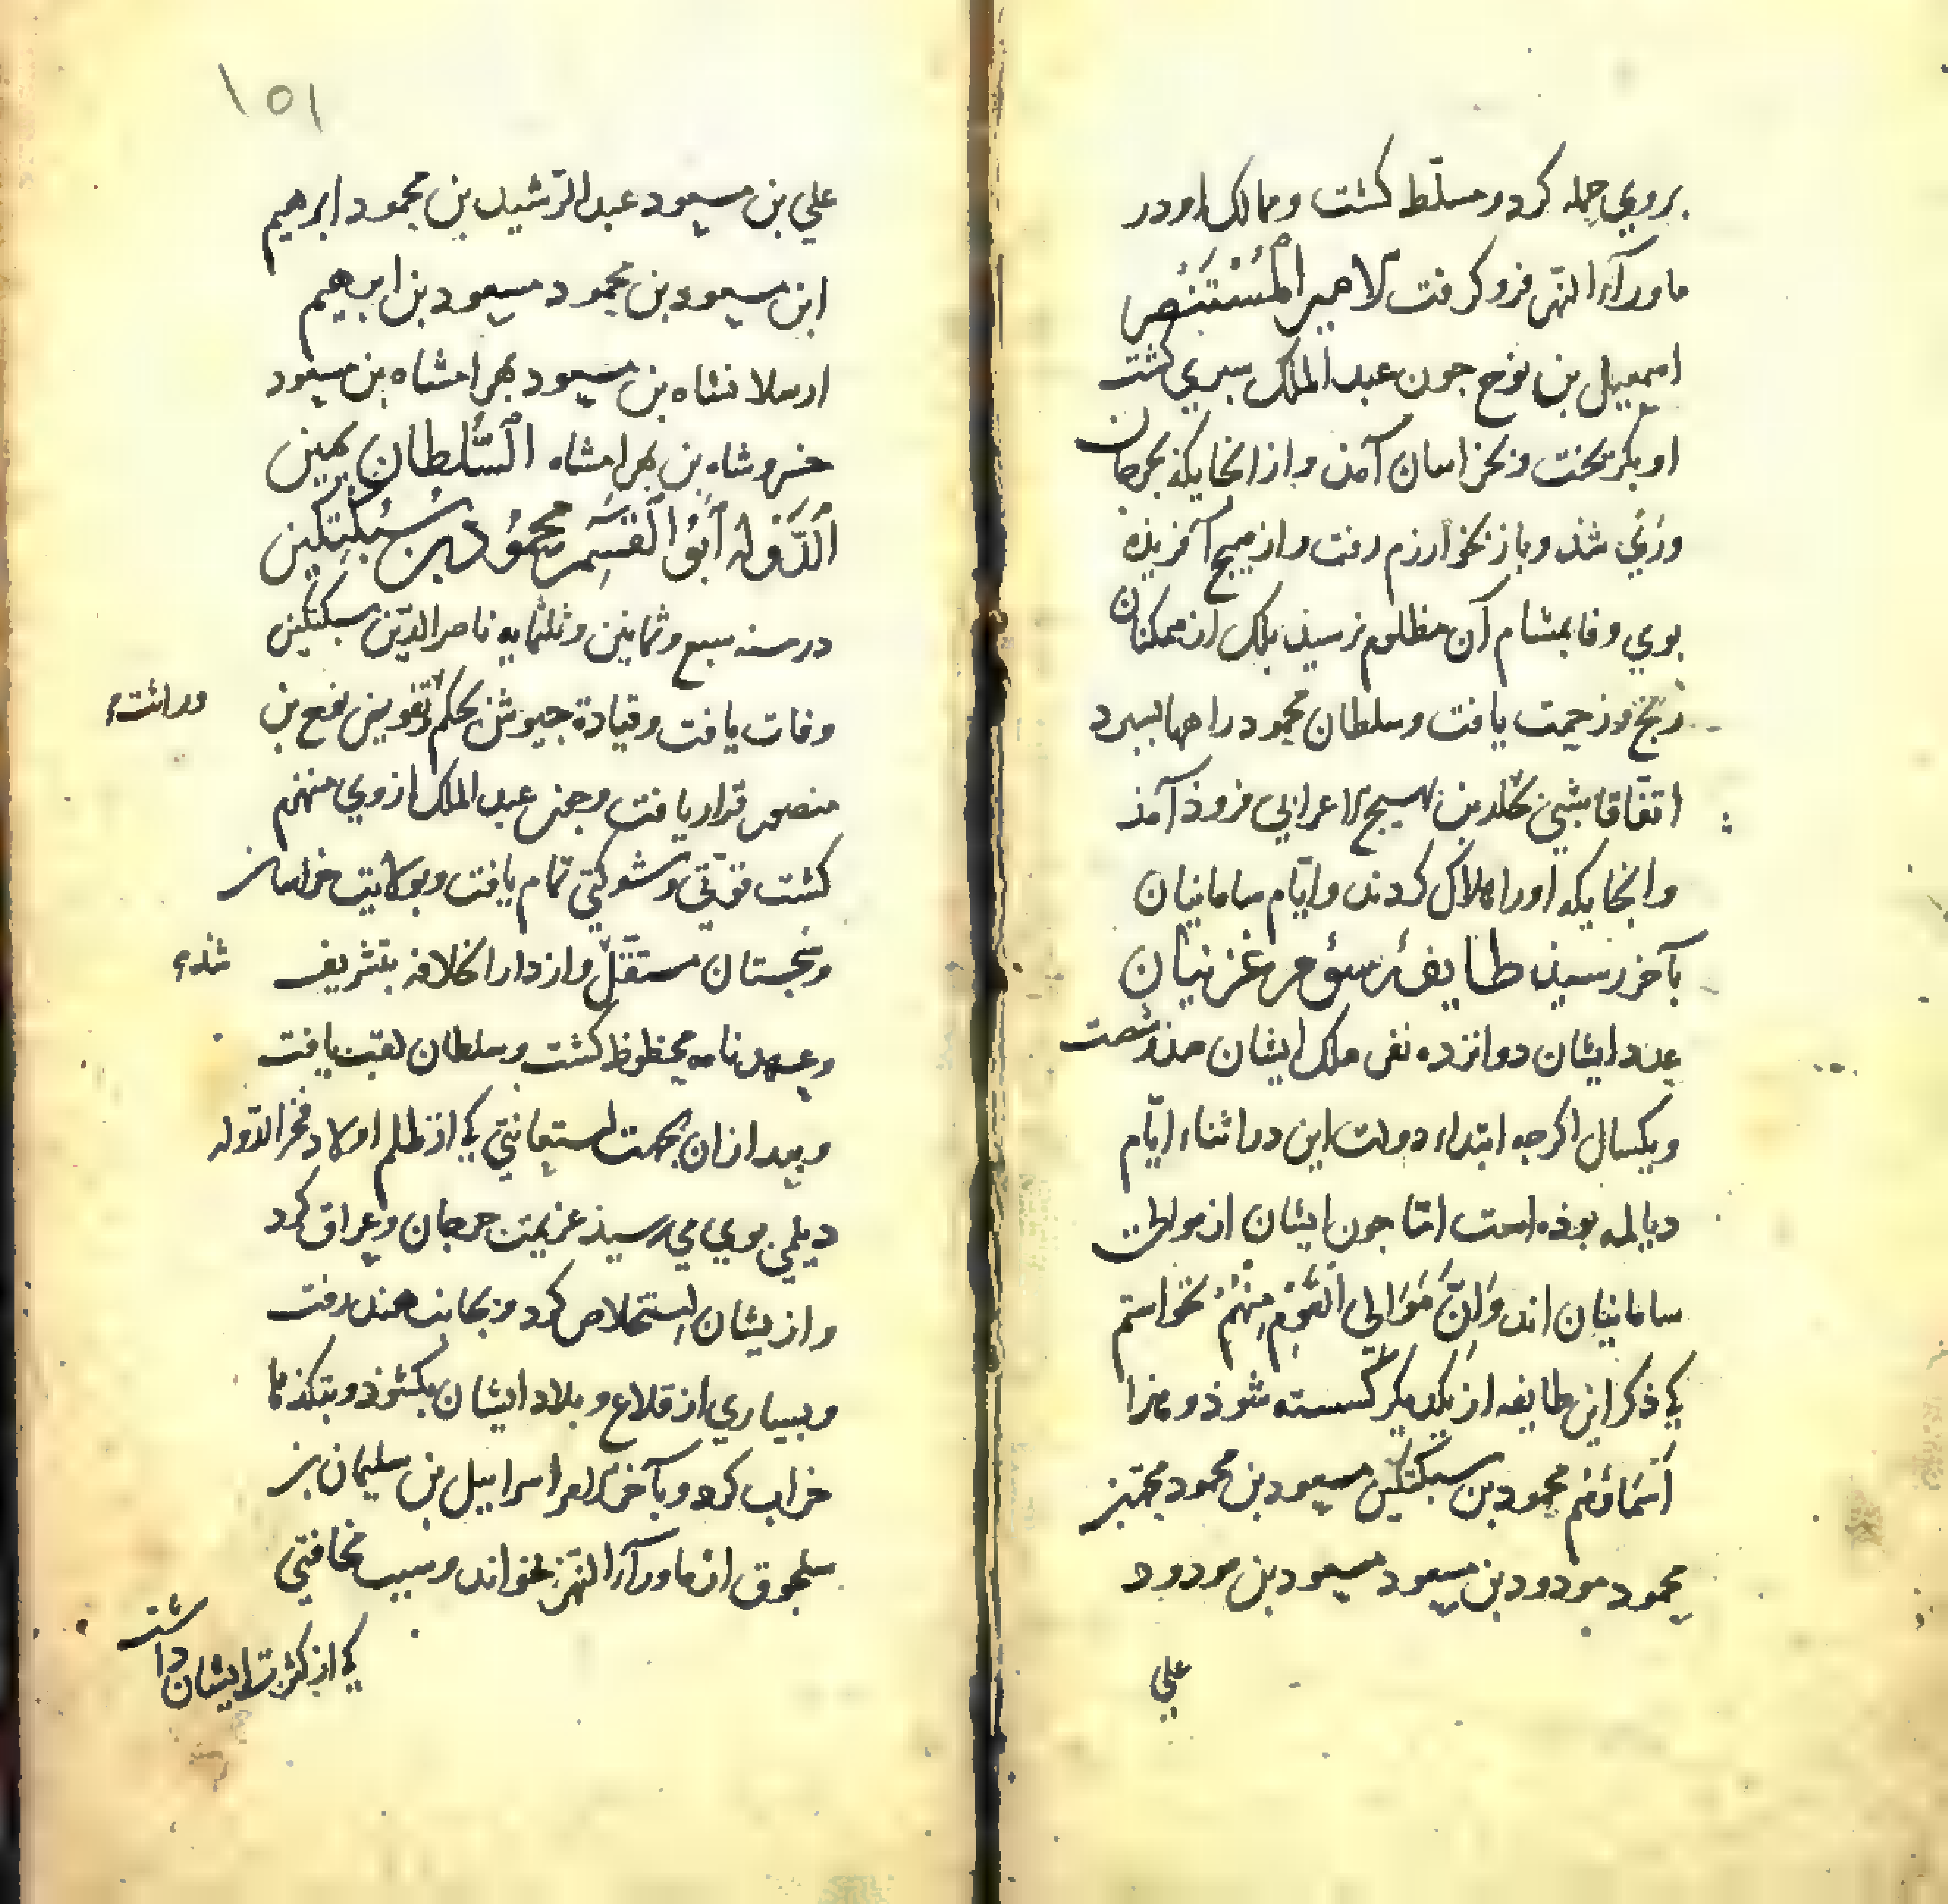 بروي حمله كرد و مسلّط كشت و ممالك او در
ماورآء النهر فرو كرفت الامير المُسْتَنْصِر
اسمعيل بن نوح جون عبد الملك سبري كشت
او بكريخت و بخراسان آمذ و از انجايكه بجرجان
وَرَيّ شذ و باز بخوارزم رفت و از هيج آفريذه
بوي وفا بمشام آن مظلوم نرسيذ بلك از ممكنان
رنج و زحمت يافت و سلطان محمود راهها بسبرد
اتفاقا بشبي بحلّه بن بهيج الاعرابي فروذ آمذ
و انجايكه اورا هلاك كردند و ايّام سامانيان
بآخر رسيذ طايفۀ سؤم غزنيان
عدد ايشان دوانزده نفر ملك ايشان صذ و شصت
و يكسال اكرجه ابتداء دولت اين در اثناء ايّام
ديالمه بوذه است امّا جون ايشان از موالي
سامانيان اند وَاِنَّ مَوَالِي القَوْمِ مِنْهُمْ نخواستم
كي ذكر اين طايفه از يكديكر كسسته شوذ و هذا
اَسْمَاؤهُمْ محمود بن سبكتكين مسعود بن محمود محمد بن
محمود مودود بن مسعود مسعود بن مودود
علي
١٥١
علي بن مسعود عبد الرّشيد بن محمود ابرهيم
ابن مسعود بن محمود مسعود بن ابرهيم
ارسلانشاه بن مسعود بهرامشاه بن مسعود
خسروشاه بن بهرامشاه السُّلطان يمين
الدَّوْله اَبُو القسِمْ محمُوْد بن سُبُكتِكين
در سنه سبع و ثمانين و ثلثمايه ناصر الدّين سبكتكين
وفات يافت و قيادة جيوش بحكم تفويض نوح بن
وراثت
منصور قرار يافت و جون عبد الملك از وي منهزم
كشت قوّتي و شوكتي تمام يافت و بولايت خراسان
و سجستان مستقلّ و از دار الخلافه بتشريف
شذ
و عهدنامه محظوظ كشت و سلطان لقب يافت
و بعد از ان بجهت استعانتي كي از ظلم اولاد فخر الدّوله
ديلمي بوي مي رسيذ عزيمت جرجان و عراق كرد
و از يشان استخلاص كرد و بجانب هند رفت
و بسياري از قلاع و بلاد ايشان بكشوذ و بتكذها
خراب كرد و بآخر الامر اسراييل بن سليمان بن
سلجوق از ماورآء النهر بخواند و سبب مخافتي
كي از كثرت ايشان داشت